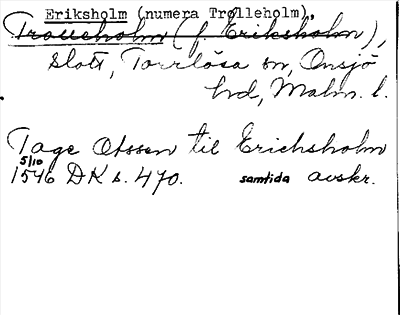 Eriksholm (numera Trolleholm),
Trolleholm (f. Eriksholm),
slott, Torrlösa sn, Onsjö
hrd, Malm. l.
Tage Otssen til Erichsholm
5/10
1546 DK s. 470. samtida avskr.